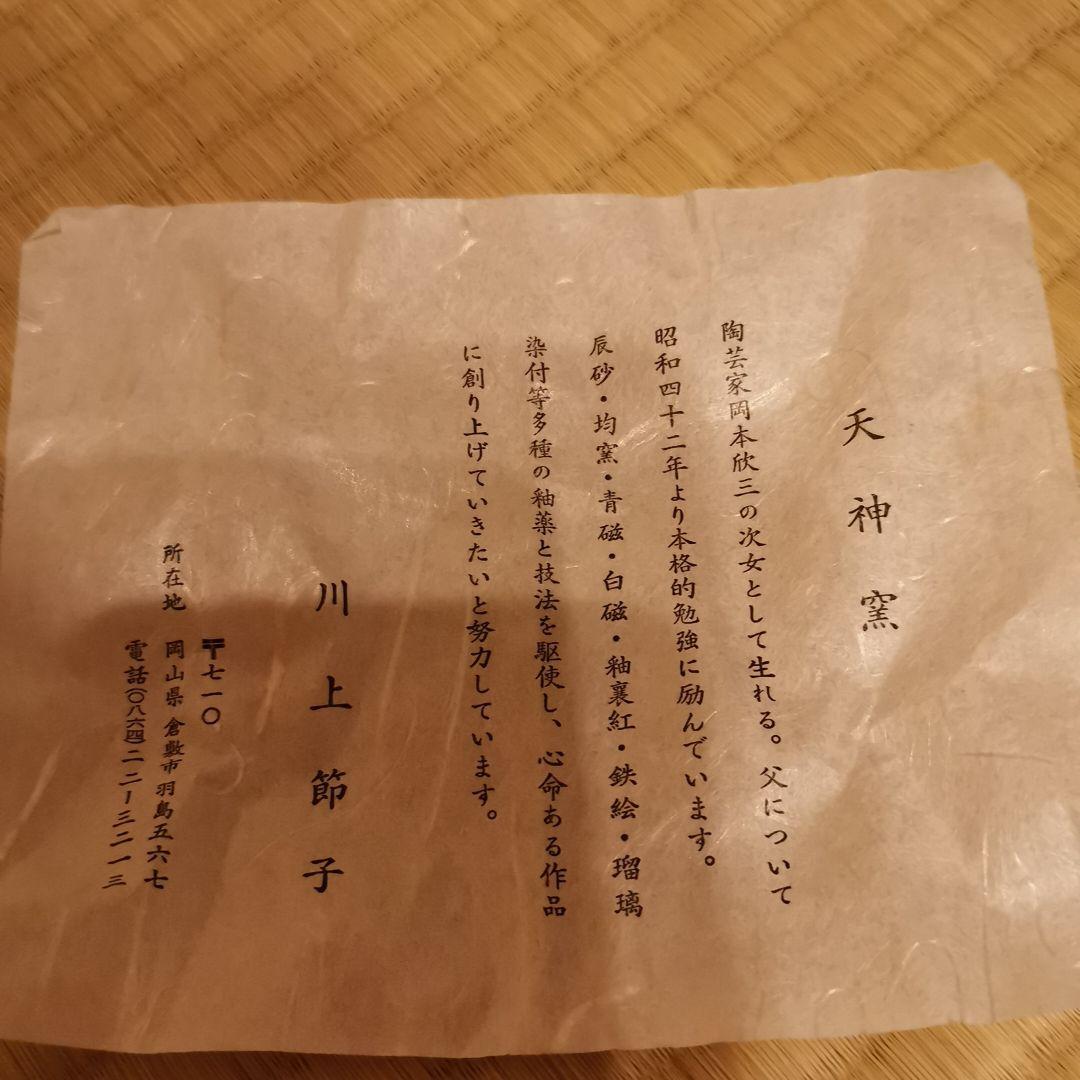 天神窯
陶芸家岡本欣三の次女として生れる。父について
昭和四十二年より本格的勉強に励んでいます。
辰砂・均窯・青磁・白磁・釉裏紅・鉄絵・瑠璃
染付等多種の釉薬と技法を駆使し、心命ある作品
に創り上げていきたいと努力しています。
川上節子
〒七一〇
所在地 岡山県倉敷市羽島五六七
電話(〇八六四)二二ー三二一三